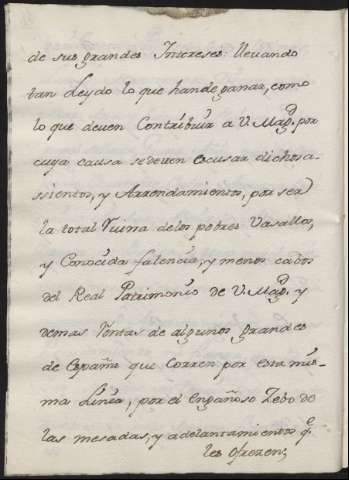 de sus grandes Intereses: lleuando
tan Leydo lo que han de ganar, como
lo que deuen Contribuir a V. Magd. por
cuya causa se deuen escusar dichos a-
ssientos, y Arrendamientos, por ser
la total Ruina de los pobres Vasallos,
y Conocida falencia, y menos cabos
del Real Patrimonio de V. Magd. y
demas Rentas de algunos grandes
de España que Corren por esta mis-
ma Linea, por el engañoso Zebo de
las mesadas, y adelantamientos qe.
les ofrezen;